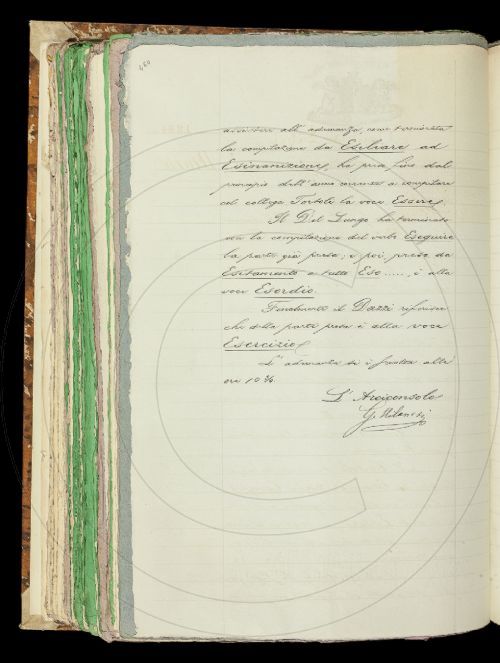 480
all' adunanza, come terminata
la compilazione da Esiliare ad
Esinanizione, ha pria fino dal
principio dell' anno corrente a compilare
col collega Tortoli la voce Essere.
Il Del Lungo ha terminato
con la compilazione del verbo Eseguire
la parte già presa; e poi, preso da
Esitamento a tutto Eso....., è alla
voce Esordio.
Finalmente il Dazzi riferisce
che della parte presa è alla voce
Esercizio.
L' adunanza si è sciolta alle
ore 10 ¾.
L' Arciconsolo
G. Milanesi